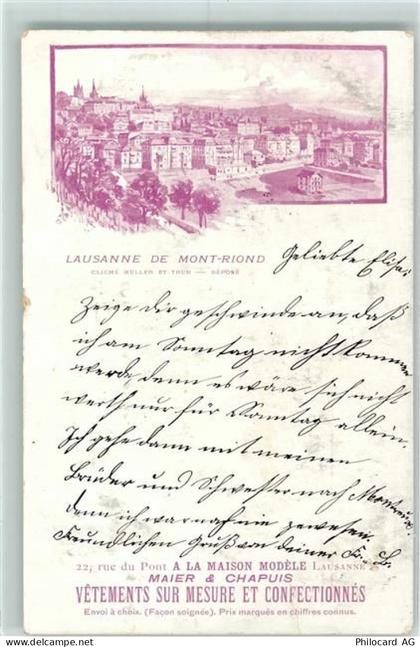 LAUSANNE DE MONT-RIOND
CLICHÉ MULLER ET TRÜB — DÉPOSÉ
Geliebte Elise,
Zeige dir geschwinde an, daß
ich am Sonntag nicht kommen
werde, denn es wäre sich nicht
werth nur für Sonntag allein.
Ich gehe dann mit meinen
Brüder und Schwester nach Montreux
denn ich war nah nie gewesen.
Freundlichen Gruß von deiner Fr.
22, rue du Pont A LA MAISON MODÈLE LAUSANNE
MAIER & CHAPUIS
VÊTEMENTS SUR MESURE ET CONFECTIONNÉS
Envoi à choix. (Façon soignée). Prix marqués en chiffres connus.
www.delcampe.net
Philocard AG